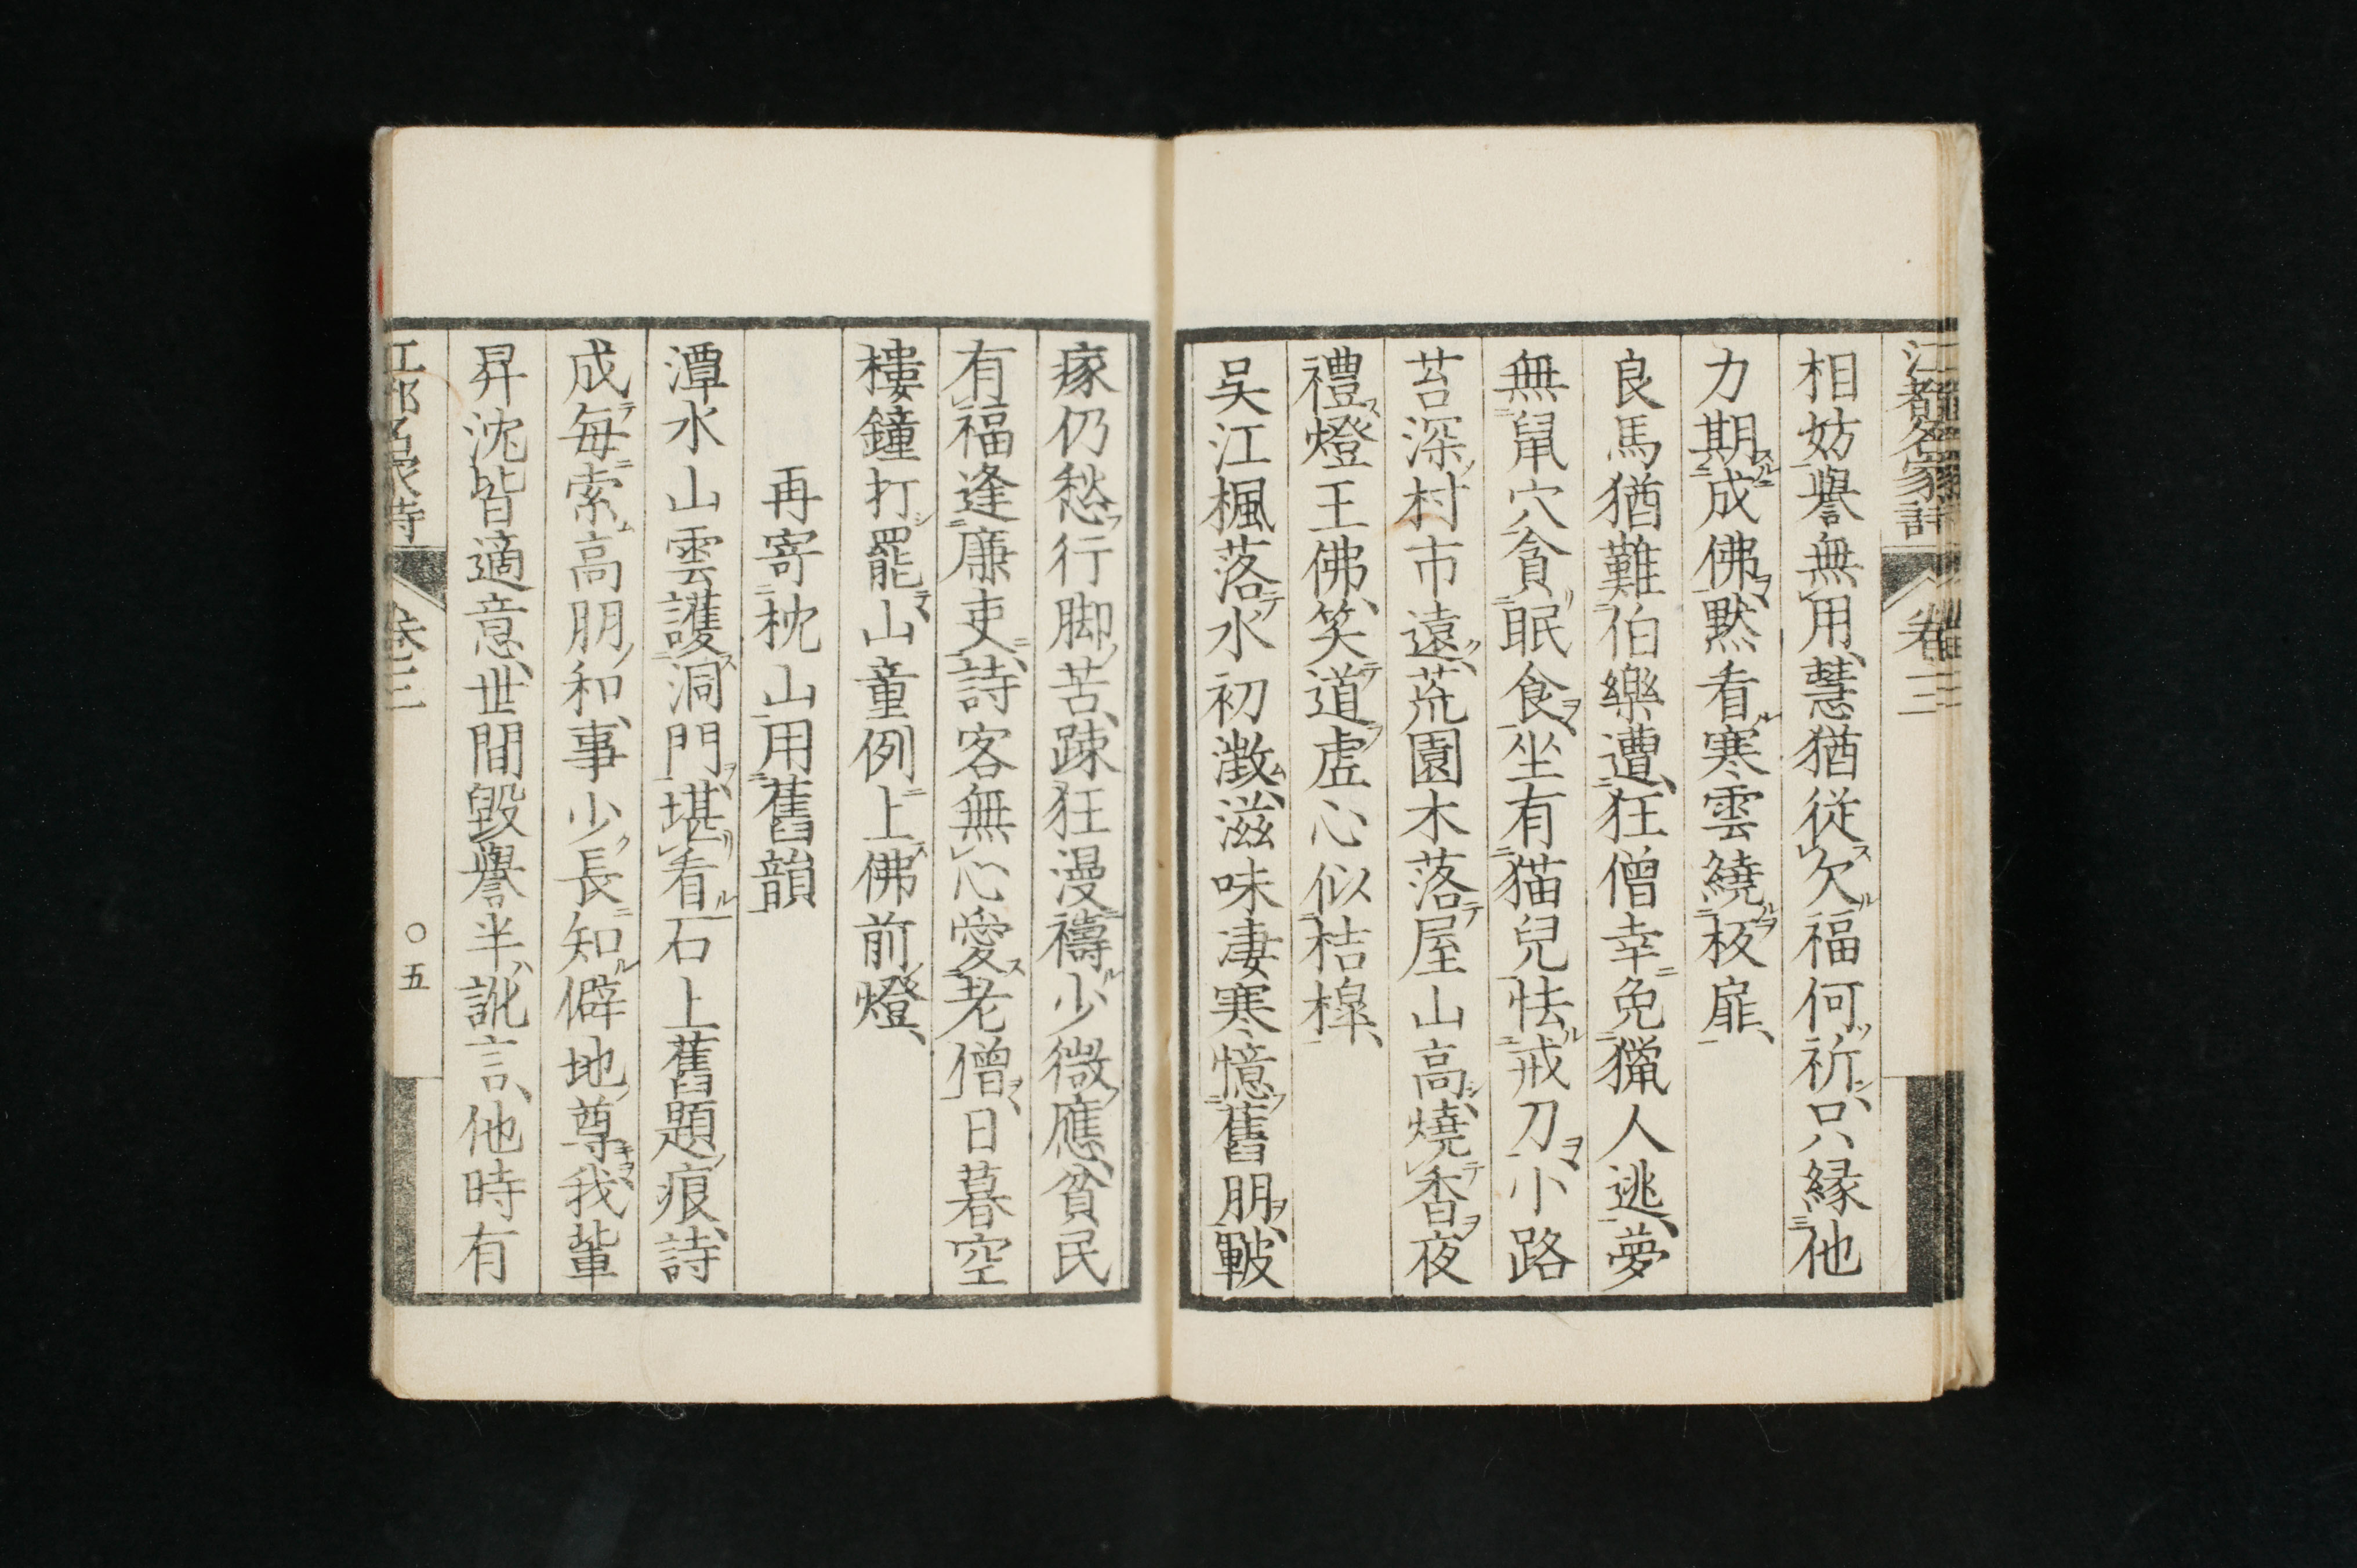 江都名家詩
卷三
相妨譽無用慧猶從欠福何祈只縁他
力期成佛默看寒雲繞板扉
良馬猶難伯樂遭狂僧幸免獵人逃夢
無鼠穴貪眠食坐有猫兒怯戒刀小路
苔深村市遠荒園木落屋山高燒香夜
禮燈王佛笑道虛心似桔槔
吳江楓落水初澂滋味凄寒憶舊朋皸
瘃仍愁行脚苦踈狂漫禱少微應貧民
有福逢廉吏詩客無心愛老僧日暮空
樓鐘打罷山童例上佛前燈
再寄枕山用舊韻
潭水山雲護洞門堪看石上舊題痕詩
成每索高朋和事少長知僻地尊我輩
昇沈皆適意世間毀譽半訛言他時有
江都名家詩
卷三
〇五